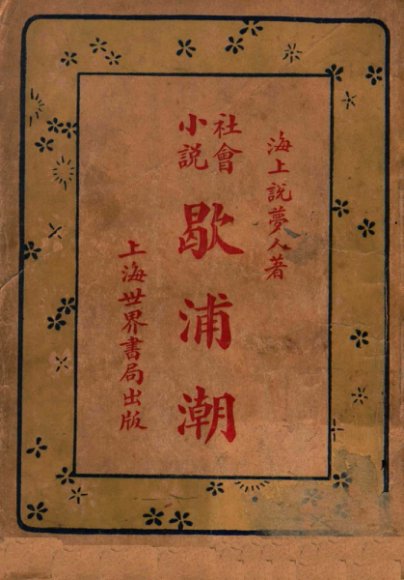 海上説夢人著
社會小説
歇浦潮
上海世界書局出版